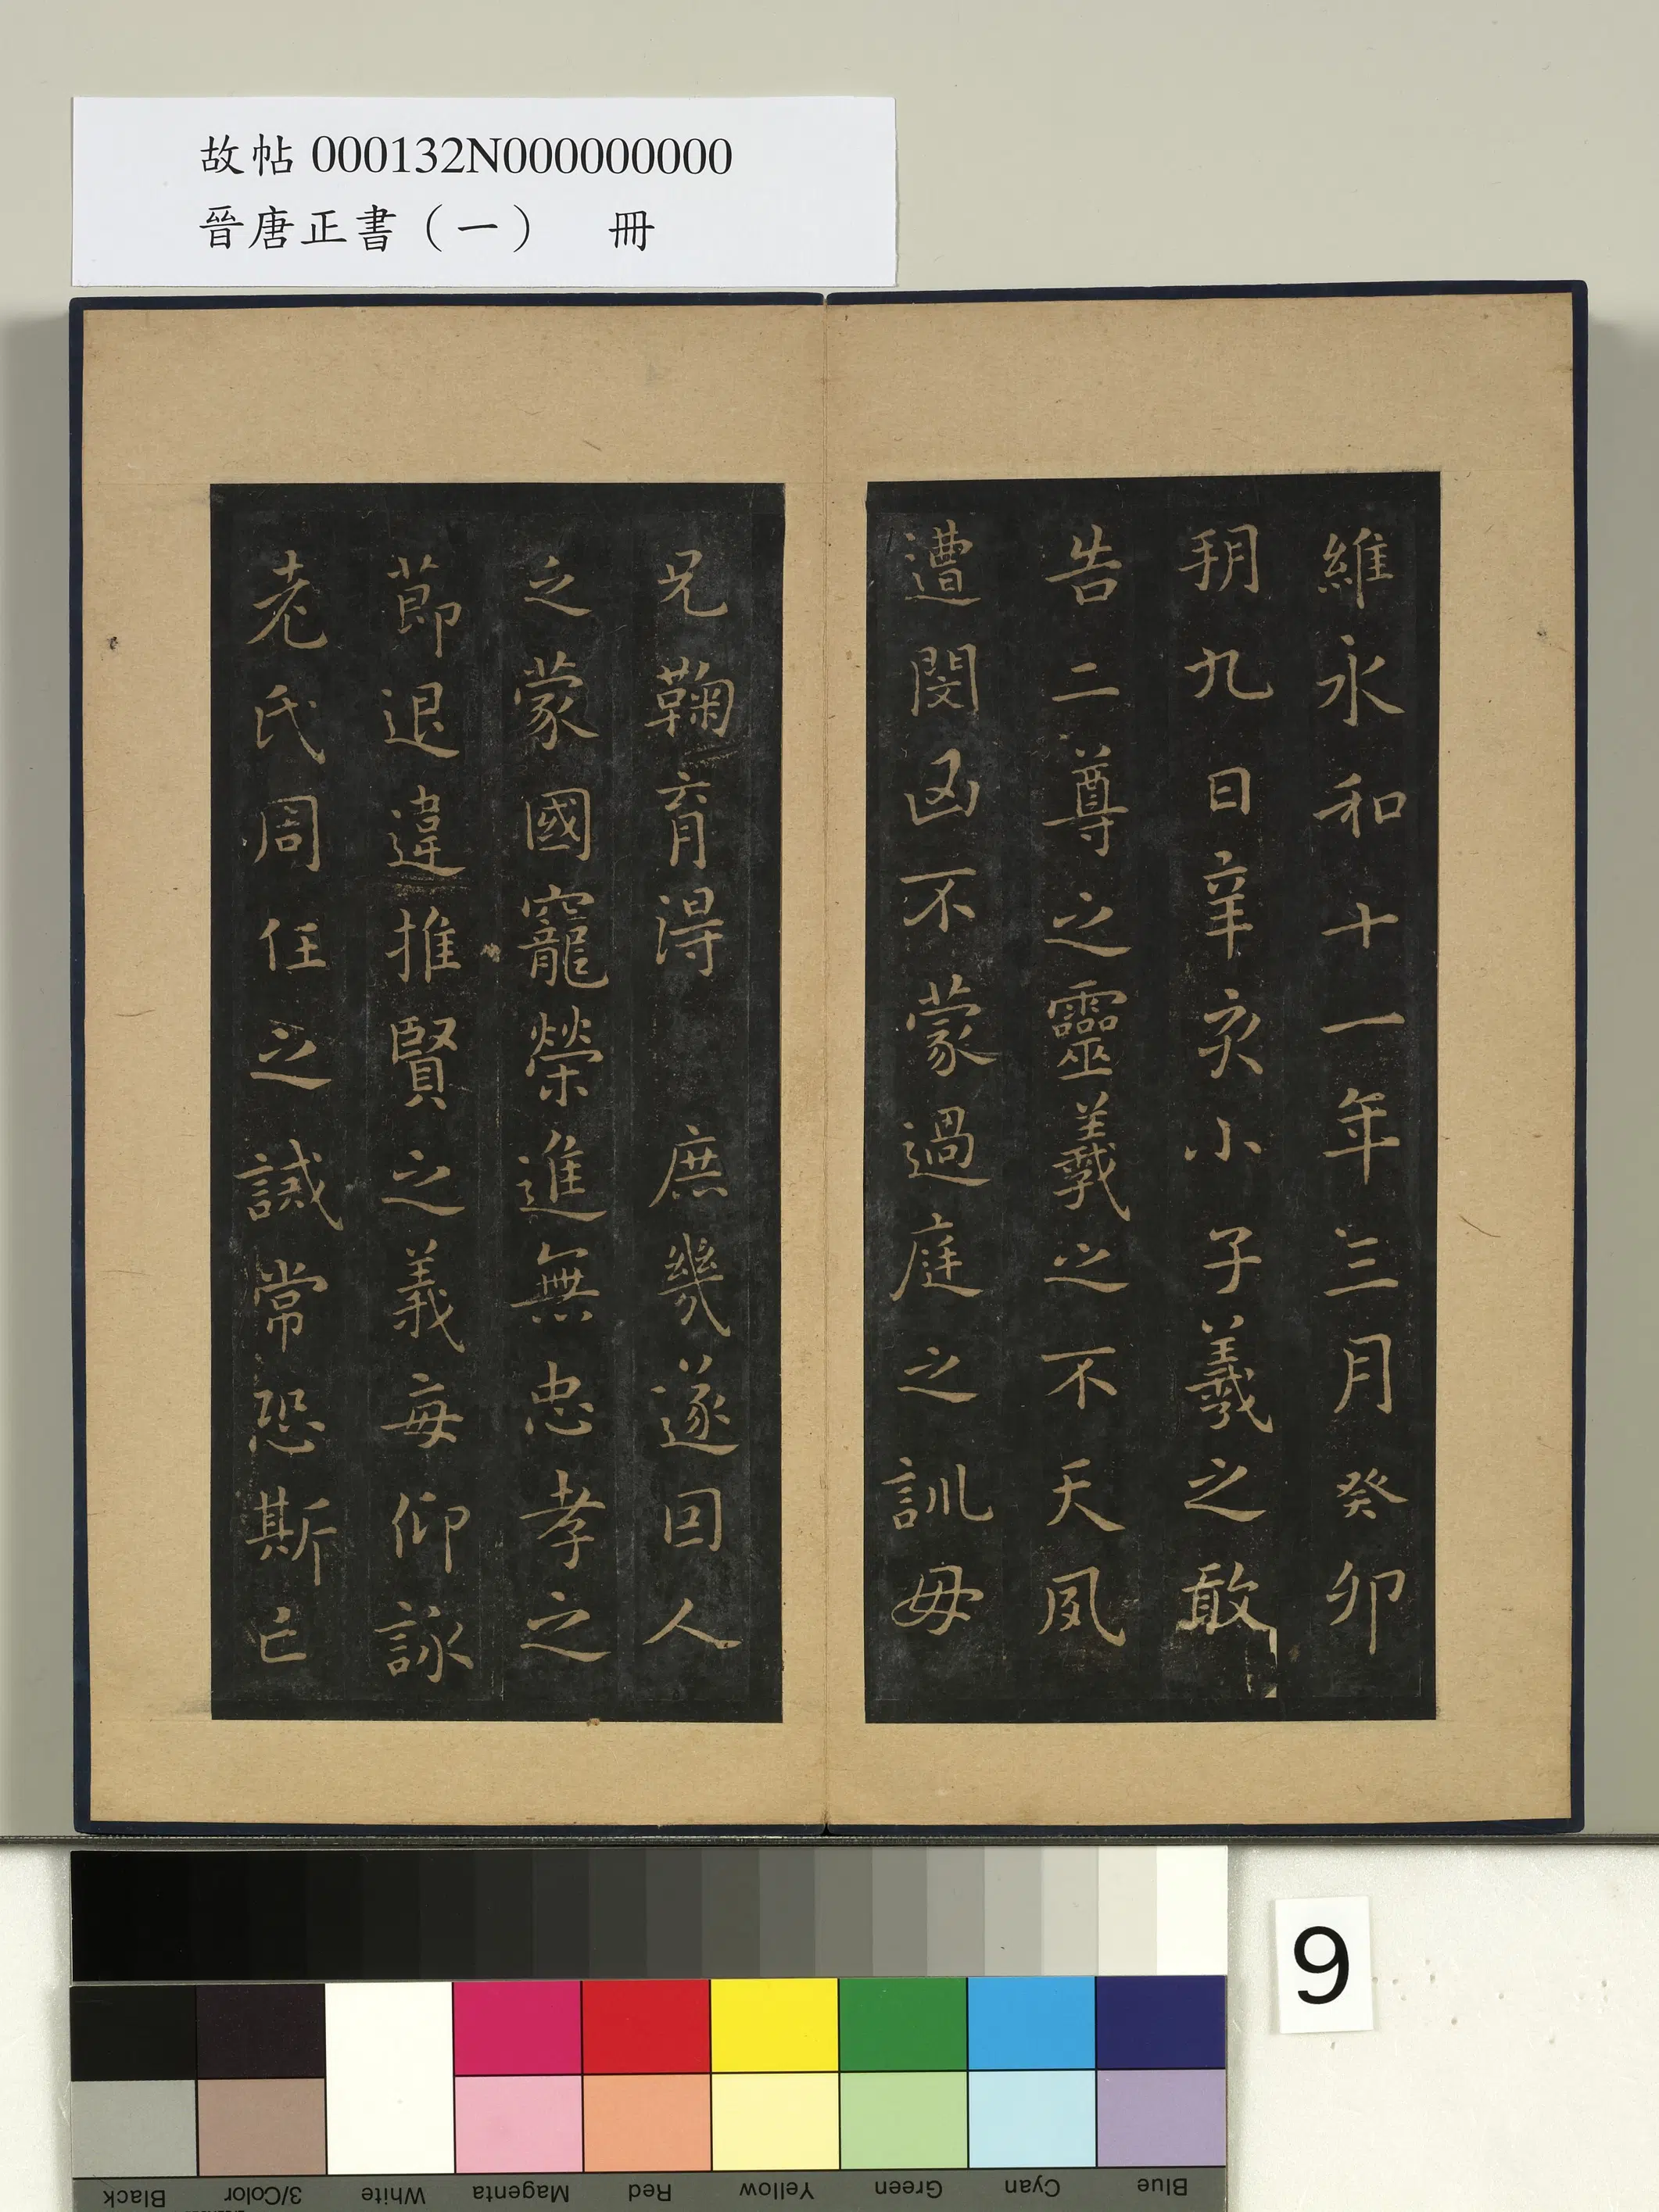 故帖000132N000000000
晉唐正書（一）　冊
維永和十一年三月癸卯
朔九日辛亥小子羲之敢
告二尊之靈羲之不天夙
遭閔凶不蒙過庭之訓毋
兄鞠育得　庶幾遂因人
之蒙國寵榮進無忠孝之
節退違推賢之義每仰詠
老氏周任之誡常恐斯亡
9
Black
3/Color
White
Magenta
Red
Yellow
Green
Cyan
Blue